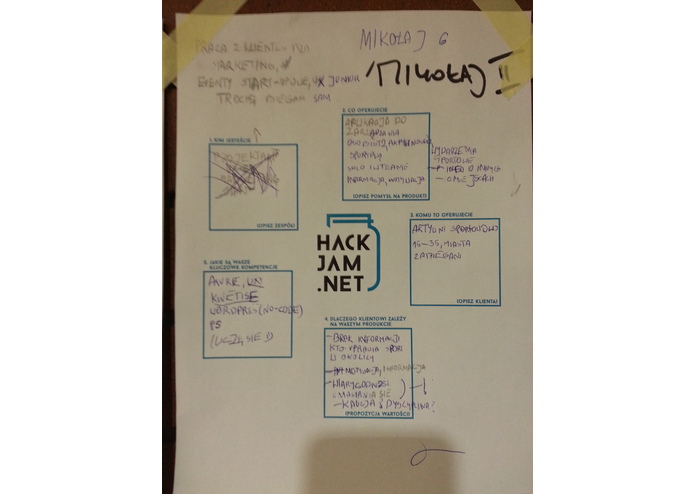 PRACA Z KLIENTEM
MARKETING,
EVENTY START-UPOWE, UX JUNIOR
TROCHĘ BIEGAM SAM
MIKOŁAJ G
MIKOŁAJ II
1. KIM JESTEŚCIE
(OPISZ ZESPÓŁ)
2. CO OFERUJECIE
APLIKACJA DO
ZARZĄDZANIA
SPORTEM
INFORMACJA, MOTYWACJA
WYDARZENIA
SPORTOWE
INFO O INNYCH
O MIEJSCACH
(OPISZ POMYSŁ NA PRODUKT)
3. KOMU TO OFERUJECIE
AKTYWNI SPORTOWO
16-35, MIASTA
ZABIEGANI
(OPISZ KLIENTA)
HACK
JAM
.NET
5. JAKIE SĄ WASZE
KLUCZOWE KOMPETENCJE
UX
WORDPRESS (NO-CODE)
PS
(UCZĘ SIĘ :))
4. DLACZEGO KLIENTOWI ZALEŻY
NA WASZYM PRODUKCIE
- BRAK INFORMACJI
KTO UPRAWIA SPORT
W OKOLICY
- MOTYWACJA, INFORMACJA
- WIARYGODNOŚĆ
UMAWIANIA SIĘ
DYSCYPLINA?
(PROPOZYCJA WARTOŚCI)